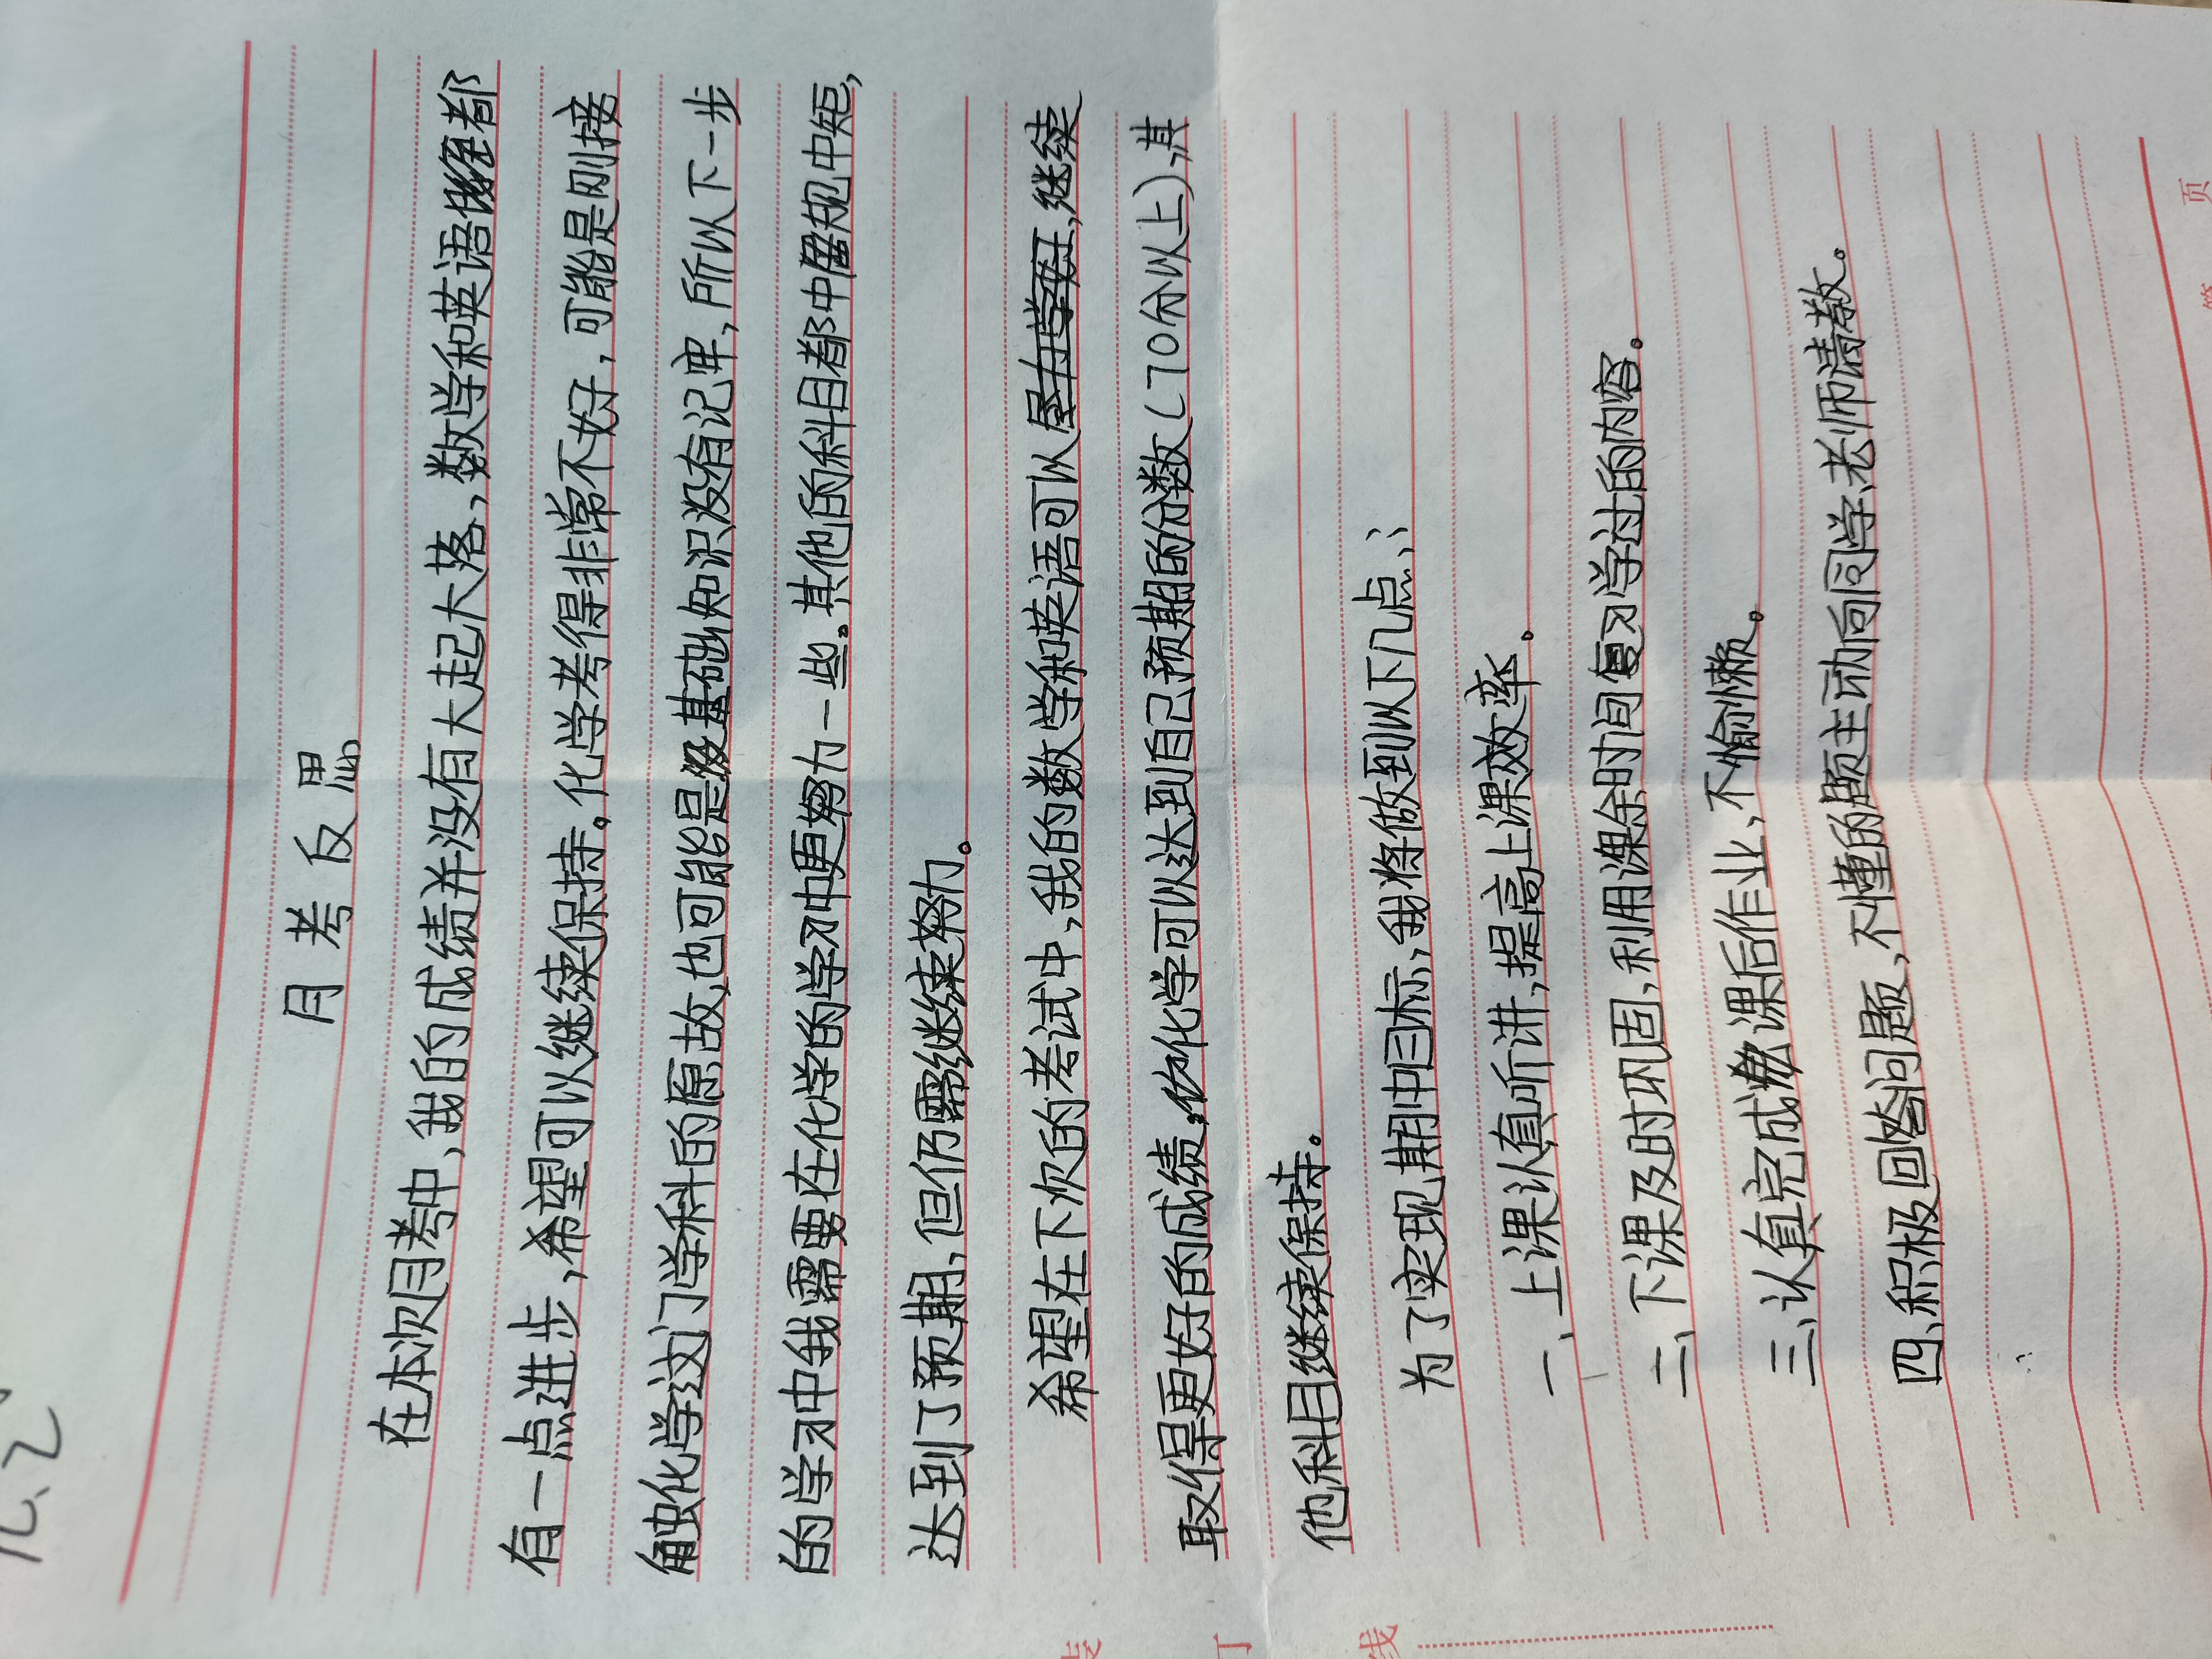 九、2
月考反思
在本次月考中,我的成绩并没有大起大落,数学和英语都
有一点进步,希望可以继续保持。化学考得非常不好,可能是刚接
触化学这门学科的原故,也可能是基础知识没有记牢,所以下一步
的学习中我需要在化学的学习中更努力一些。其他的科目都中规中矩,
达到了预期,但仍需继续努力。
希望在下次的考试中,我的数学和英语可以继续
取得更好的成绩。化学可以达到自己预期的分数(70分以上),其
他科目继续保持。
为了实现期中目标,我将做到以下几点:
一、上课认真听讲,提高上课效率。
二、下课及时巩固,利用课余时间复习学过的内容。
三、认真完成课后作业,不偷懒。
四、积极回答问题,不懂的题主动向同学、老师请教。
装
订
线
第
页